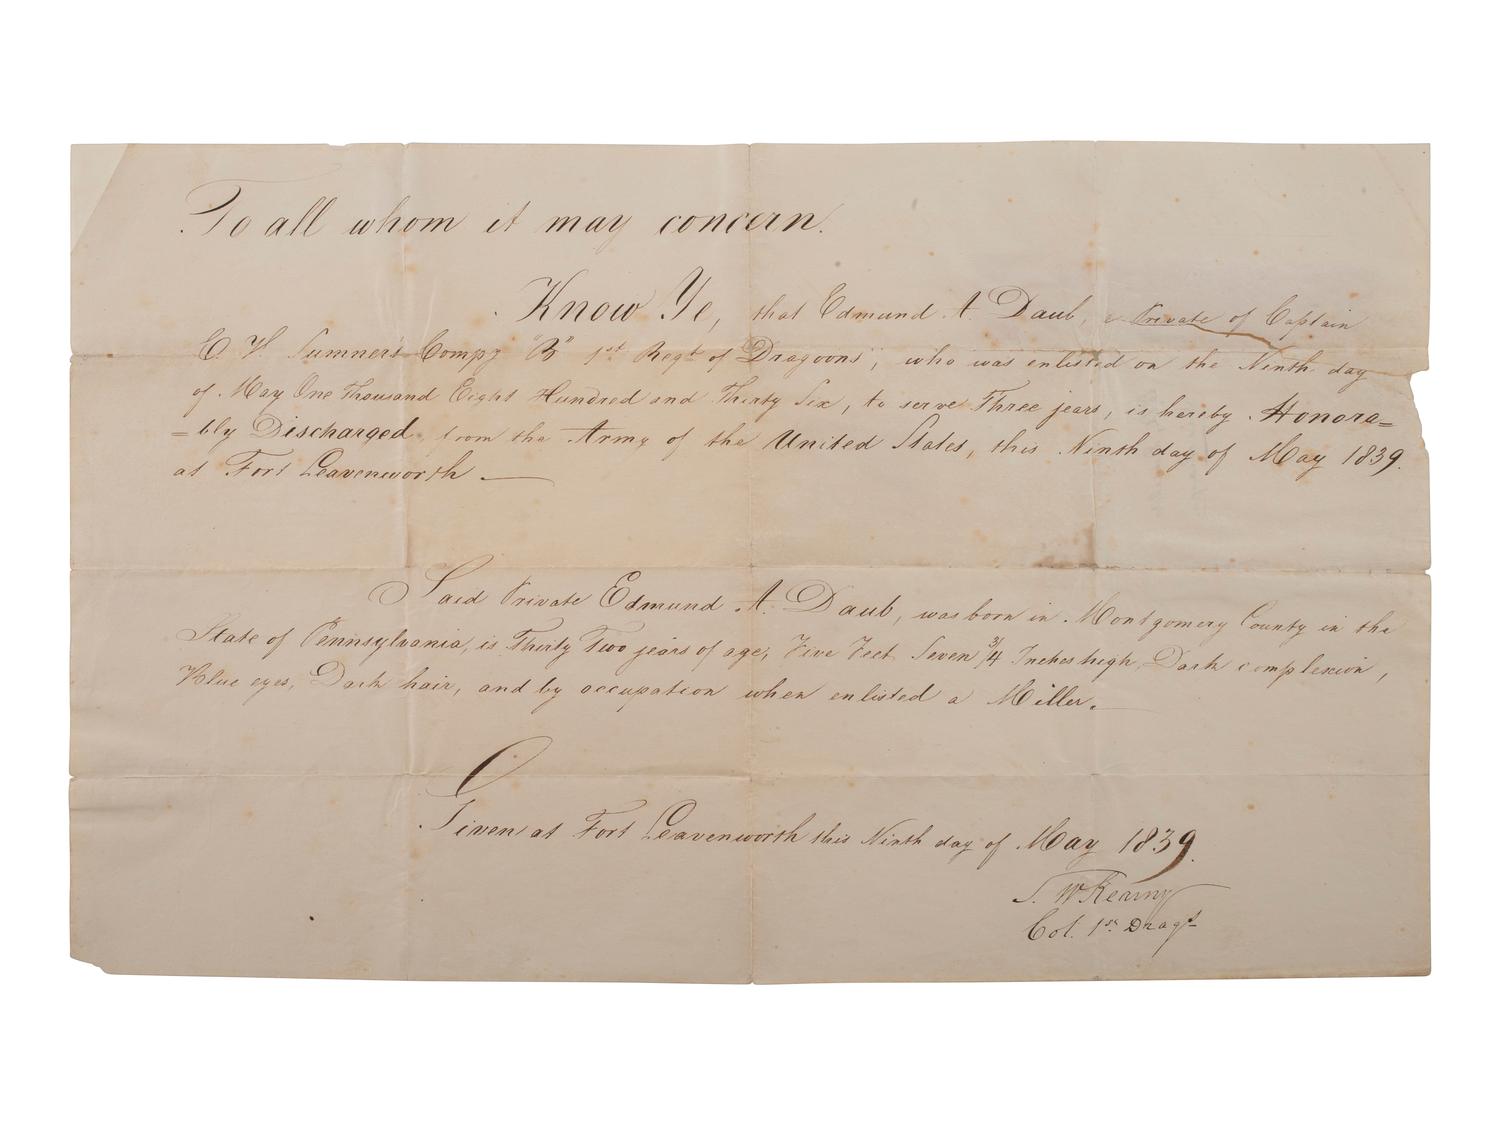 To all whom it may concern.
Know Ye, that Edmund A. Daub, a Private of Captain
E. V. Sumner's Compy "B" 1st Regt of Dragoons, who was enlisted on the Ninth day
of May One Thousand Eight Hundred and Thirty Six, to serve Three years, is hereby Honora=
=bly Discharged from the Army of the United States, this Ninth day of May 1839.
at Fort Leavenworth —
Said Private Edmund A. Daub, was born in Montgomery County in the
State of Pennsylvania, is Thirty Two years of age, Five Feet Seven 3/4 Inches high, Dark complexion,
Blue eyes, Dark hair, and by occupation when enlisted a Miller.
Given at Fort Leavenworth this Ninth day of May 1839.
S. W Kearny
Col. 1st Drags